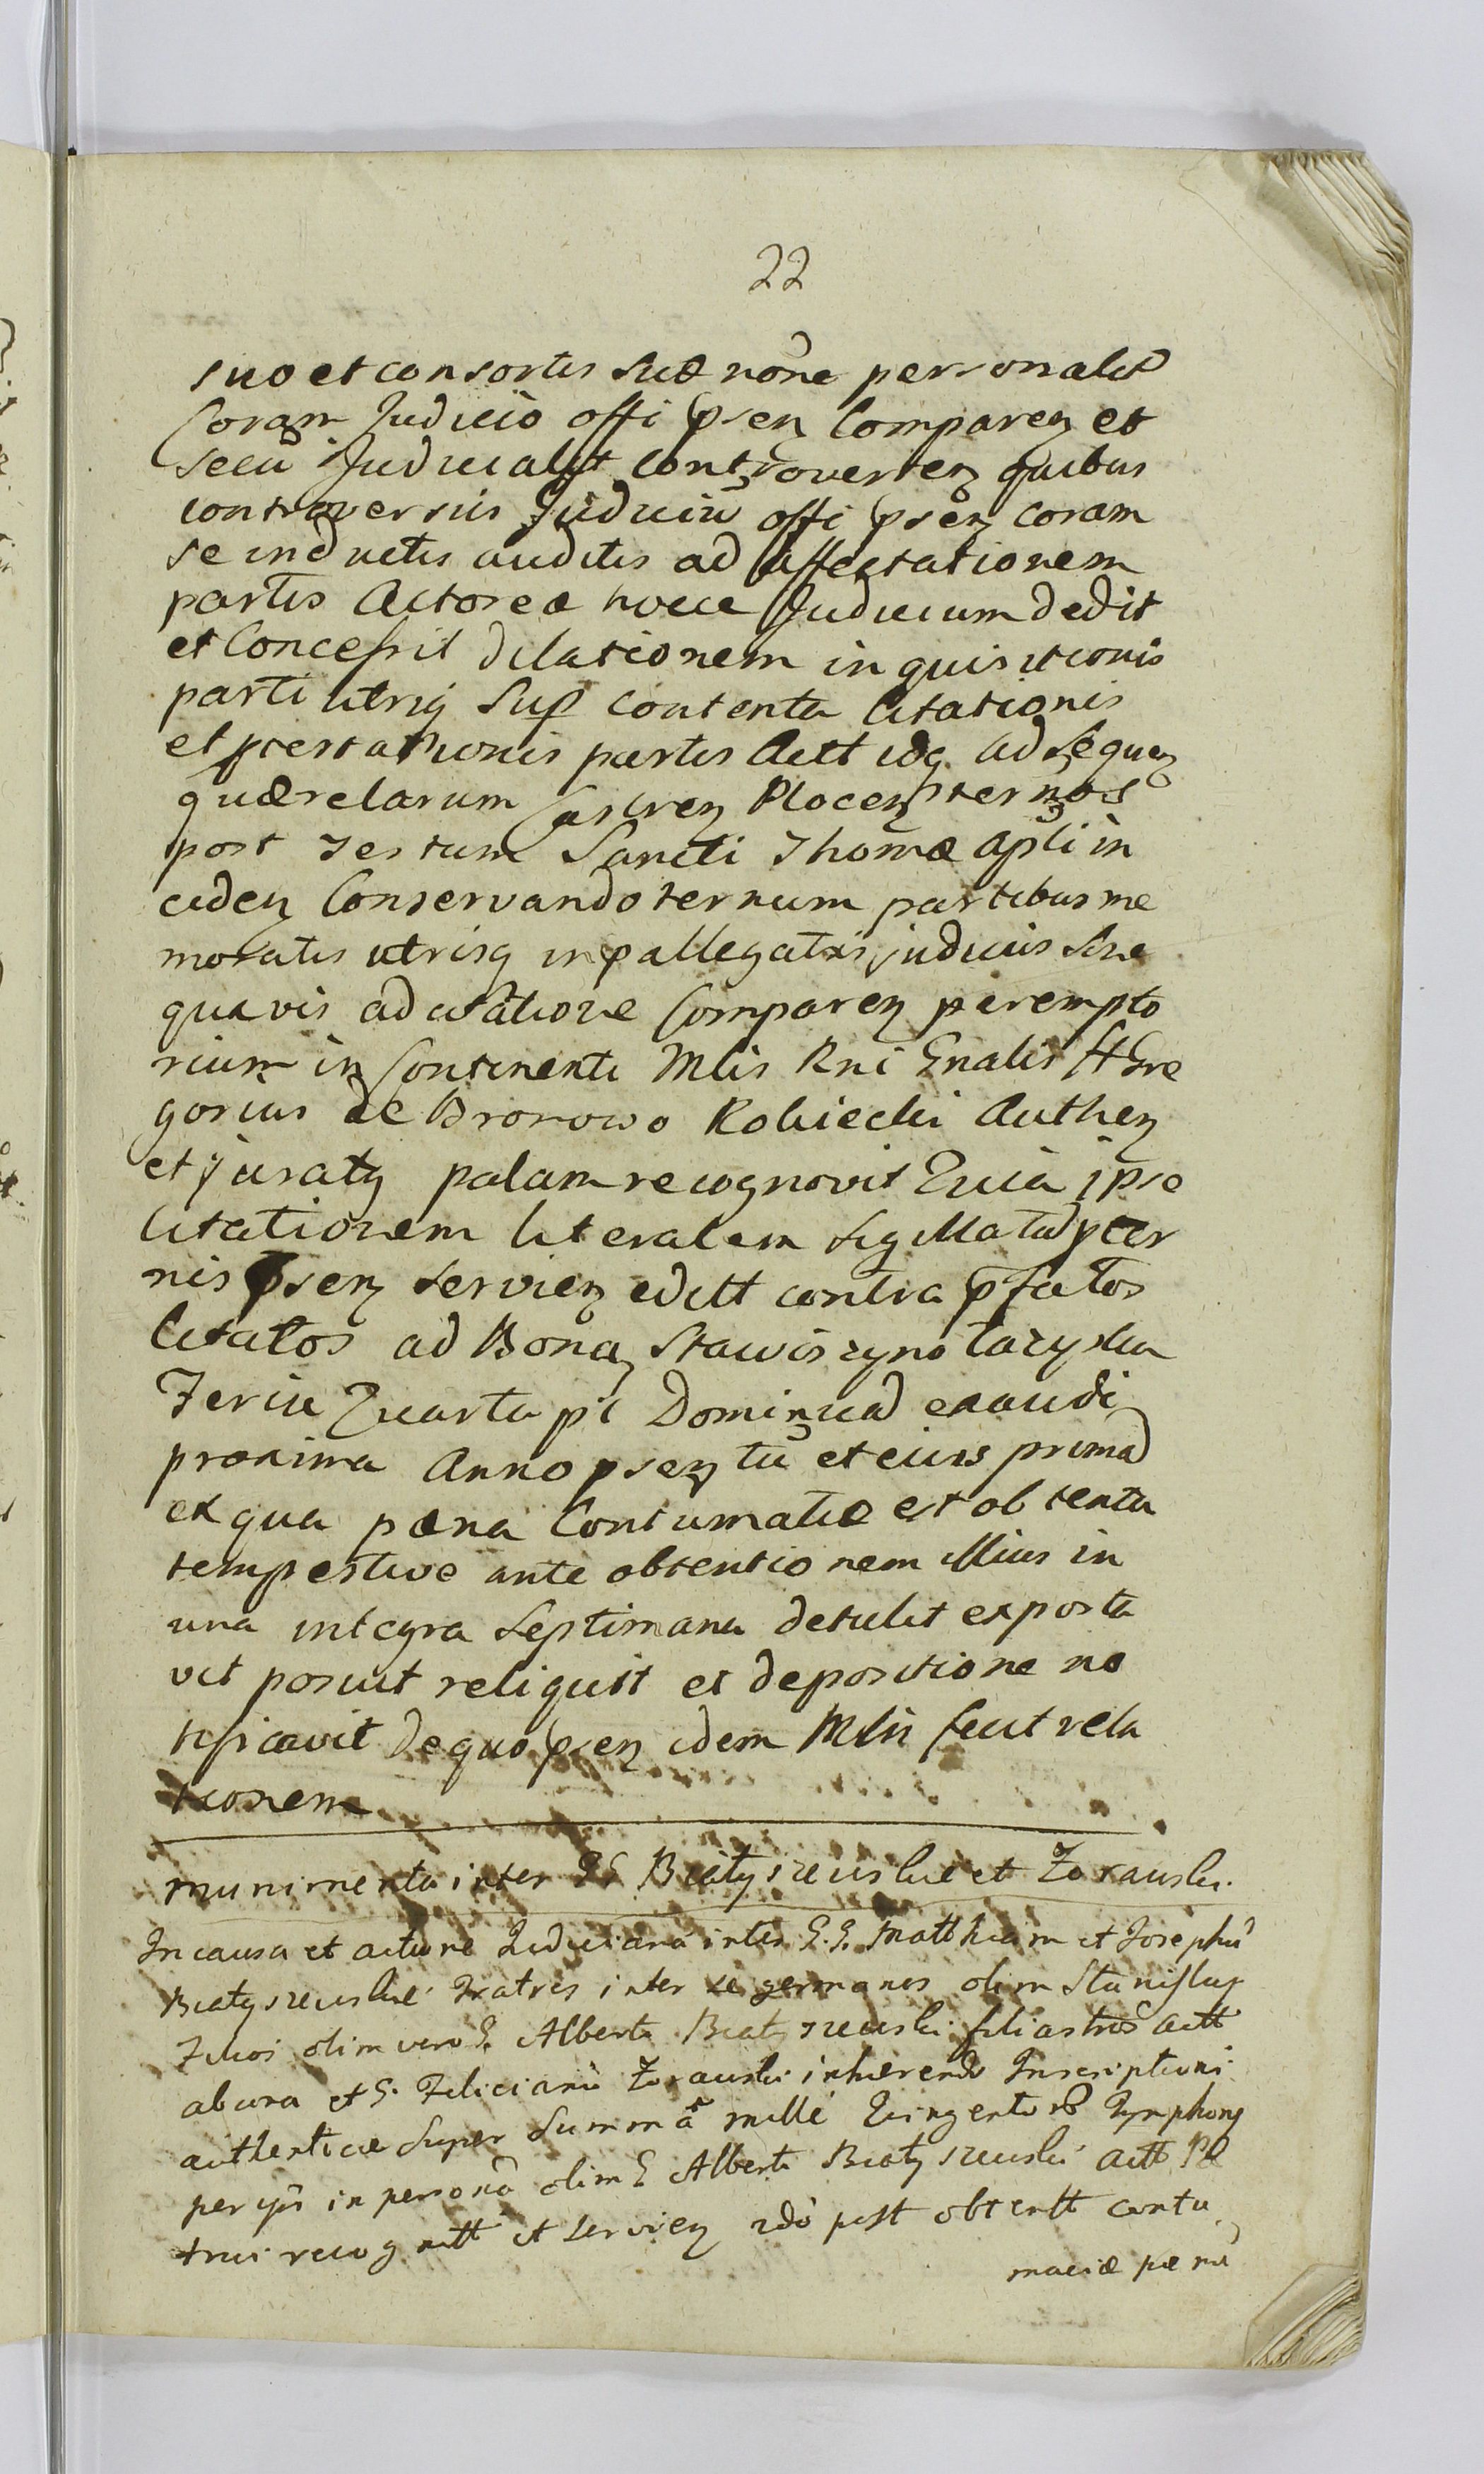 22
suo et consortis suæ nõne personalit
Coram Judicio offi psen Comparen et
secũ Judicialit controverten quibus
controversiis Judiciũ offi psen coram
se inductis auditis ad affectationem
partis Actoreæ hocce Judicium dedit
et Concessit dilationem inquisitionis
parti utriq sup contenta Citationis
et partis Actt idq ad sequen
quærelarum Castren Plocen ternos
post Festum Sancti Thomæ Apli in
eiden Conservando ternum partibus me
moratis utrisq in pallegatis judiciis sine
quavis adcitatione Comparen perempto
rium in Continenti Mlis Rni Gnalis Gre
gorius de Bronowo Robiecki Authen
et juratq palam recognovit Quia ipse
Citationem literalem sigillatã ter
nis psen servien editt contra pfatos
Citatos ad Bona Stawiszyno Łazyska
Feria Quarta pt Dominicã exaudi
proxima Anno psen tũ et eius primã
ex qua pæna Contumatiæ est obtenta
tempestive ante obtentionem illius in
una integra septimana detulit exporta
vit posuit reliquit et depositione no
tificavit de quo psen idem Mlis fecit rela
tionem
munimenta inter GG Białyszewskie et Zorawski.
In causa et actione Judiciaria inter G. G. Matthiam et Josephũ
Białyszewskie Fratres inter se germanos olim Stanislay
Filios olim vero G. Alberti Białyszewski filiastros actt
ab una et G. Felicianũ Zorawski inhærendo Inscriptioni
authenticæ super summã mille Quingentorũ Tymphon
per in personã olim G Alberti Białyszewski actt Pa
trui recognitt et servien ido post obtentt contu
maciæ pænã